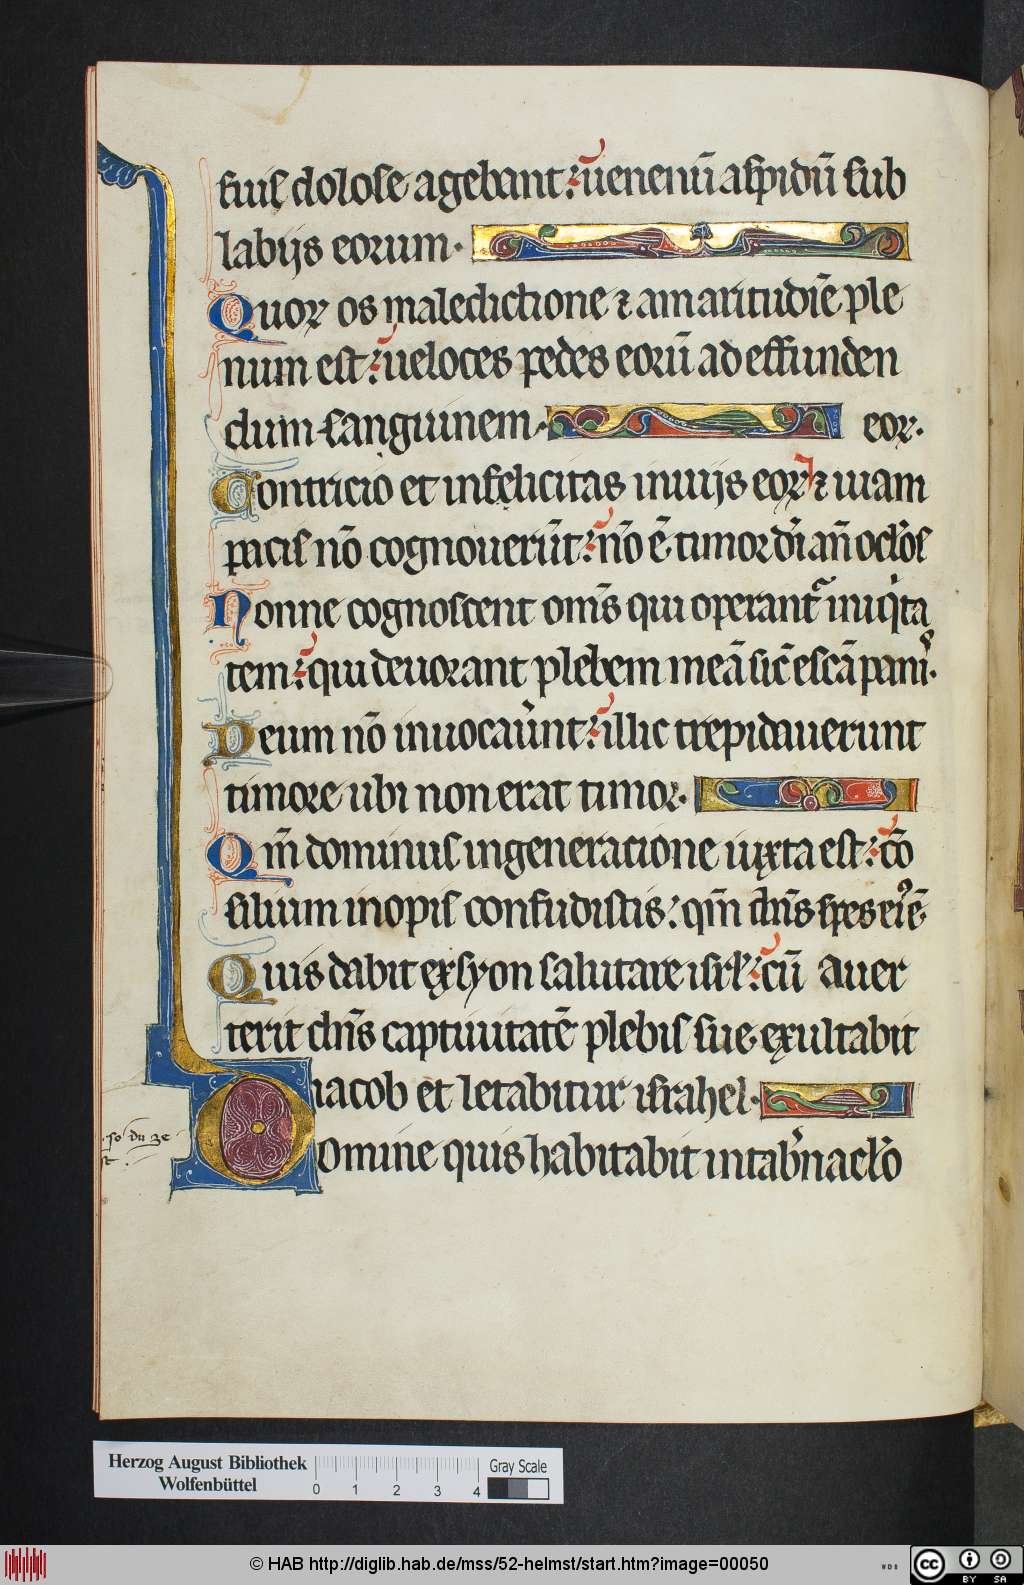 suis dolose agebant : uenenū aspidū sub
labijs eorum ·
Quoꝝ os maledictione ⁊ amaritudīe ple
num est : ueloces pedes eorū ad effunden
dum sanguinem · eoꝝ ·
Contricio et infelicitas in uijs eoꝝ ⁊ uiam
pacis nō cognouerūt : nō ē timor dī añ oclōs
Nonne cognoscent om̄s qui operant᷑ iniqͥta
tem : qui deuorant plebem meā sic̄ escā panꝰ ·
Deum nō inuocaūnt : illic trepidauerunt
timore ubi non erat timor ·
Qm̄ dominus in generacione iuxta est : cō
silium inopis confudistis : qm̄ dn̄s spes eiꝰ ē ·
Quis dabit ex syon salutare isrl̄ : cū auer
terit dn̄s captiuitatē plebis sue · exultabit
iacob et letabitur israhel ·
Domine quis habitabit in tab̄nacl̄o
Herzog August Bibliothek
Wolfenbüttel
0 1 2 3 4
Gray Scale
© HAB http://diglib.hab.de/mss/52-helmst/start.htm?image=00050
WDB
cc BY SA